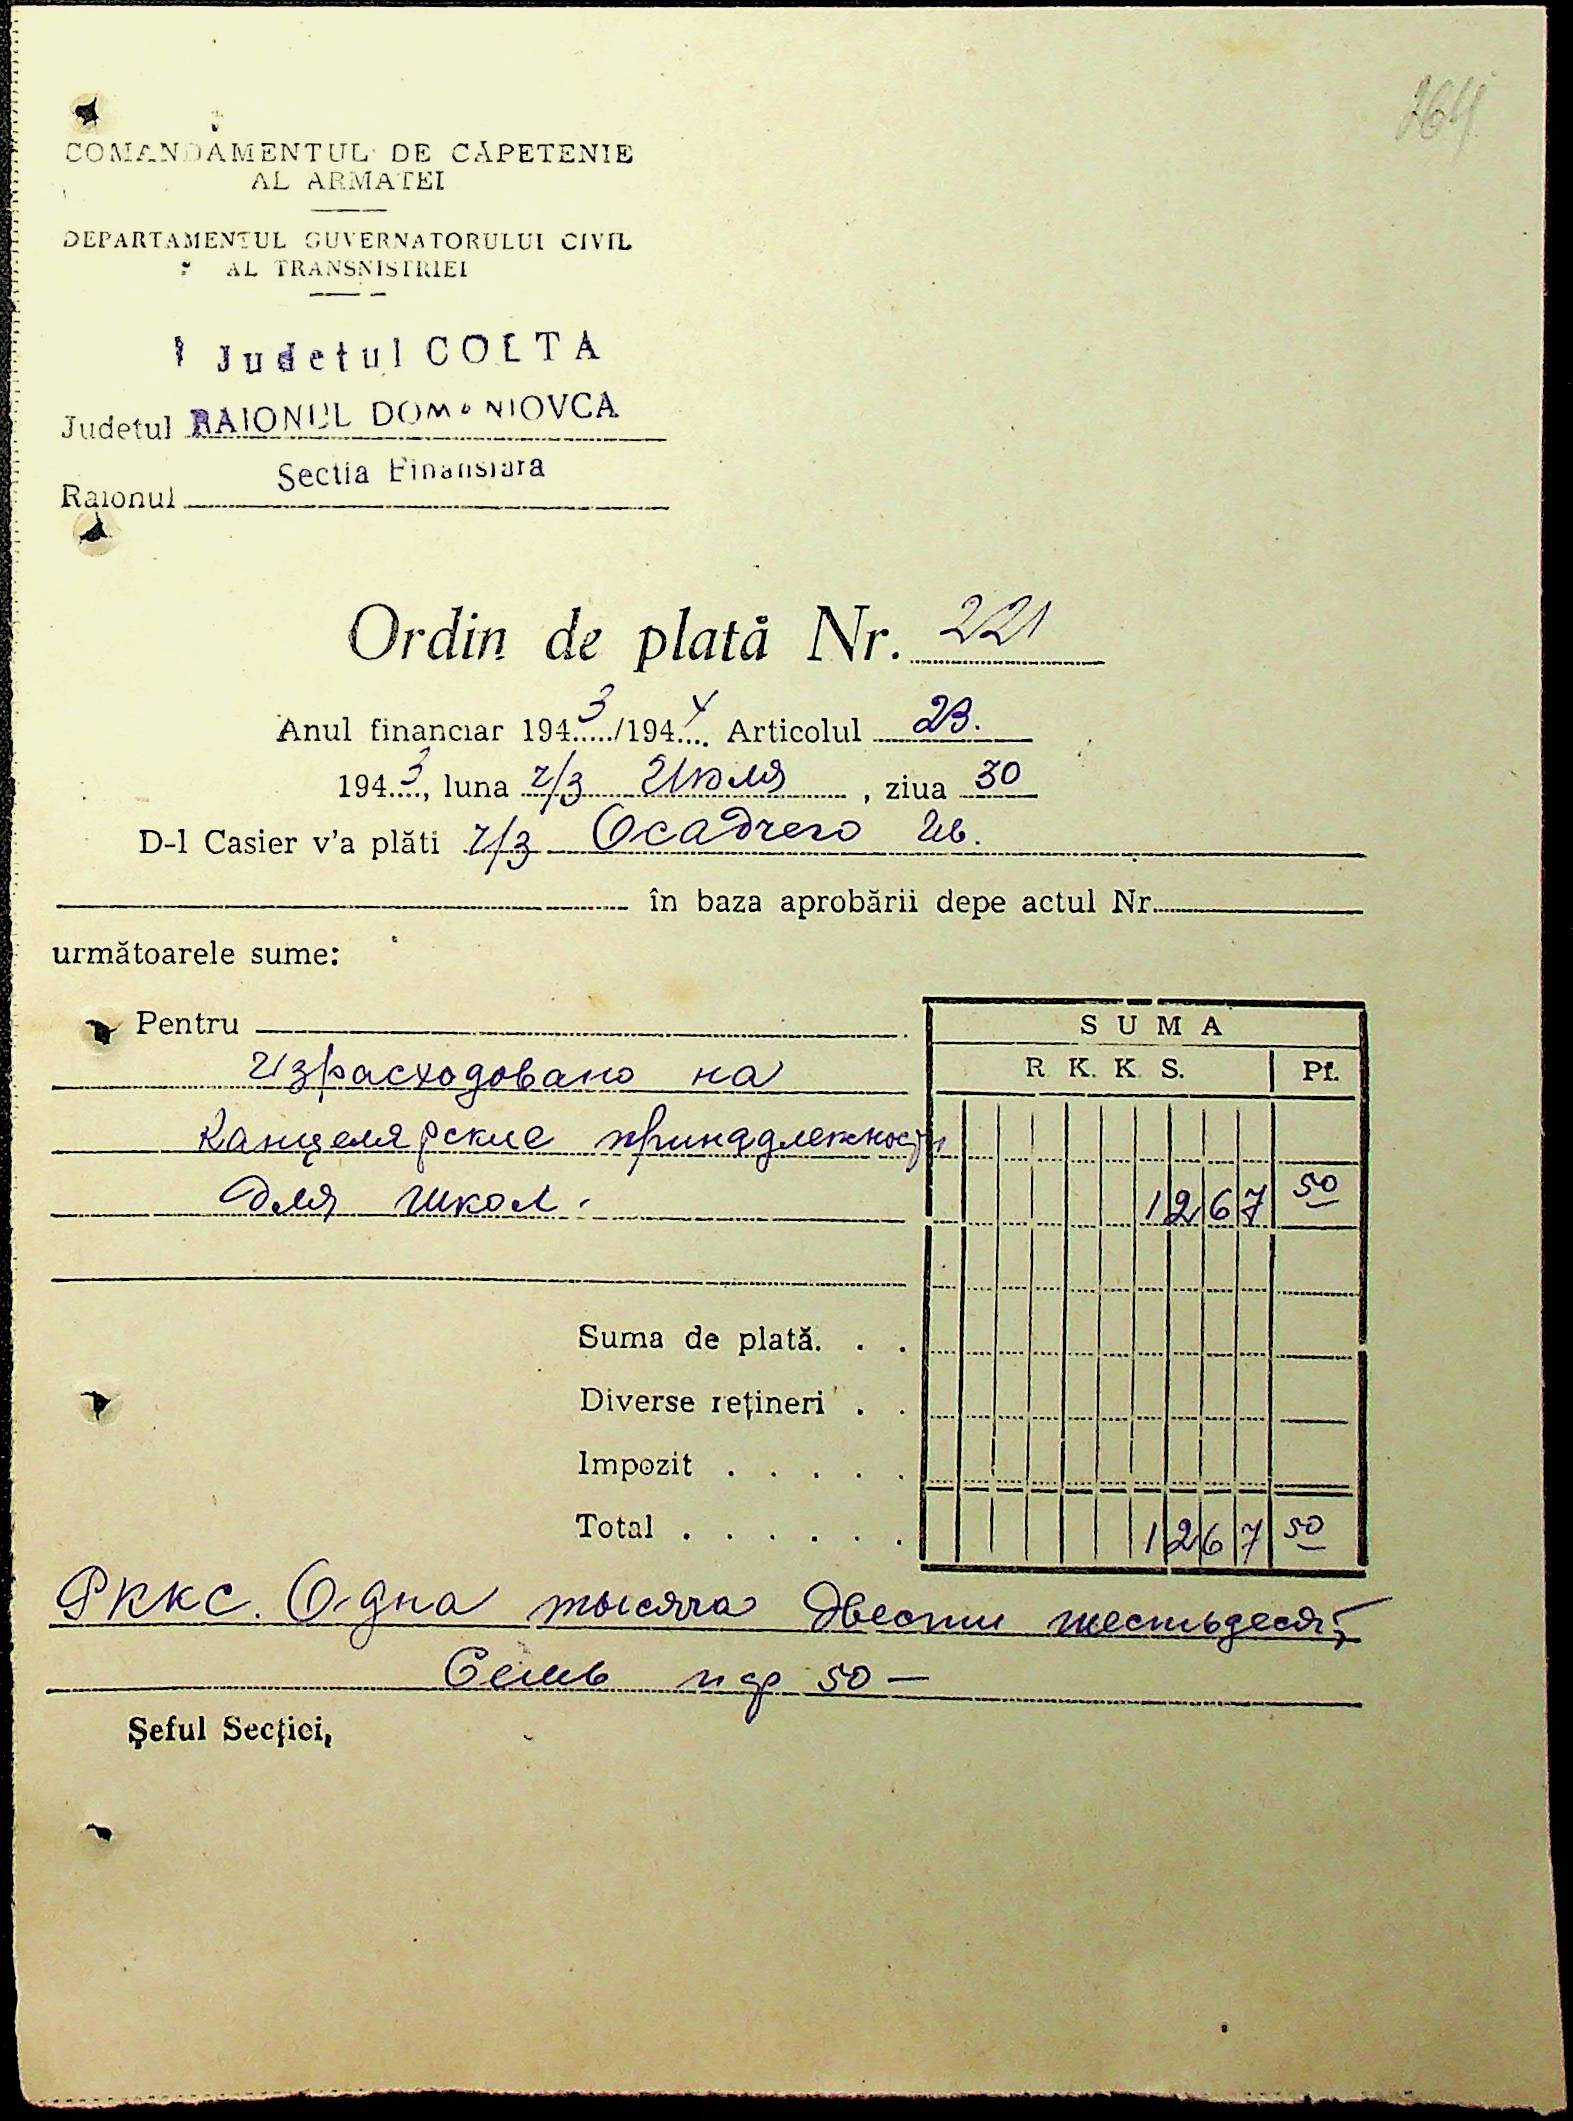 264
COMANDAMENTUL DE CĂPETENIE
AL ARMATEI
DEPARTAMENTUL GUVERNATORULUI CIVIL
AL TRANSNISTRIEI
Judetul COLTA
Judetul RAIONUL DOMANIOVCA
Sectia Finansiara
Raionul
Ordin de plată Nr. 221
Anul financiar 1943/1944 Articolul 23.
1943, luna ч/з Июля, ziua 30
D-l Casier v'a plăti ч/з Осадчего Ив.
în baza aprobării depe actul Nr.
următoarele sume:
Pentru
SUMA
R. K. K. S. Pf.
Израсходовано на
Канцелярские принадлежности
для школ. 1267 50
Suma de plată. . .
Diverse rețineri . .
Impozit . . . . .
Total . . . . . . 1267 50
РККС. Одна тысяча двести шестьдесят
Семь пф 50 —
Șeful Secției,